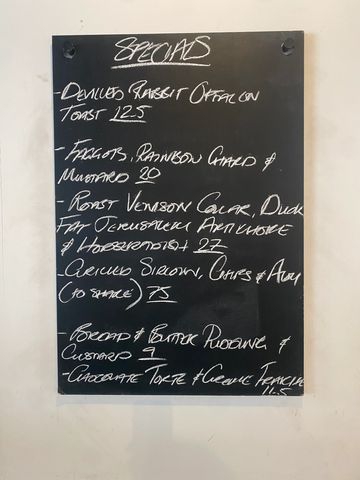 SPECIALS
- DEVILLED RABBIT OFFAL ON
TOAST 12.5
- FAGGOTS, RAINBOW CHARD &
MUSTARD 20
- ROAST VENISON COLLAR, DUCK
FAT JERUSALEM ARTICHOKE
& HORSERADISH 27
- GRILLED SIRLOIN, CHIPS & AIOLI
(TO SHARE) 75
- BREAD & BUTTER PUDDING &
CUSTARD 9
- CHOCOLATE TORTE & CREME FRAICHE
11.5